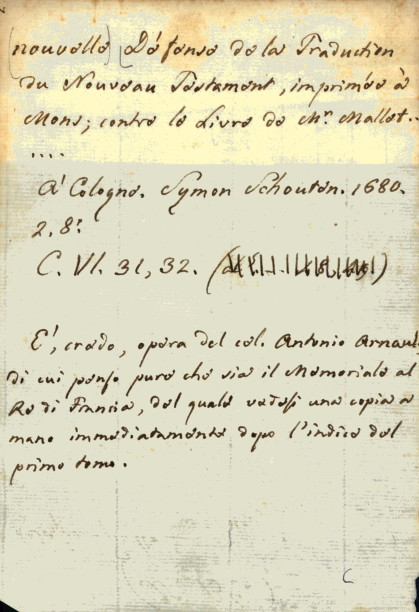 (nouvelle) (Défense de la Traduction
du Nouveau Testament, imprimée à
Mons; contre le Livre de Mr. Mallet.
....
A' Cologne. Symon Schouten. 1680.
2, 8.°
C. VI. 31, 32.
E', credo, opera del cel. Antonio Arnaul
di cui penso pure che sia il Memoriale al
Re di Francia, del quale vedesi una copia a
mano immediatamente dopo l'indice del
primo tomo.